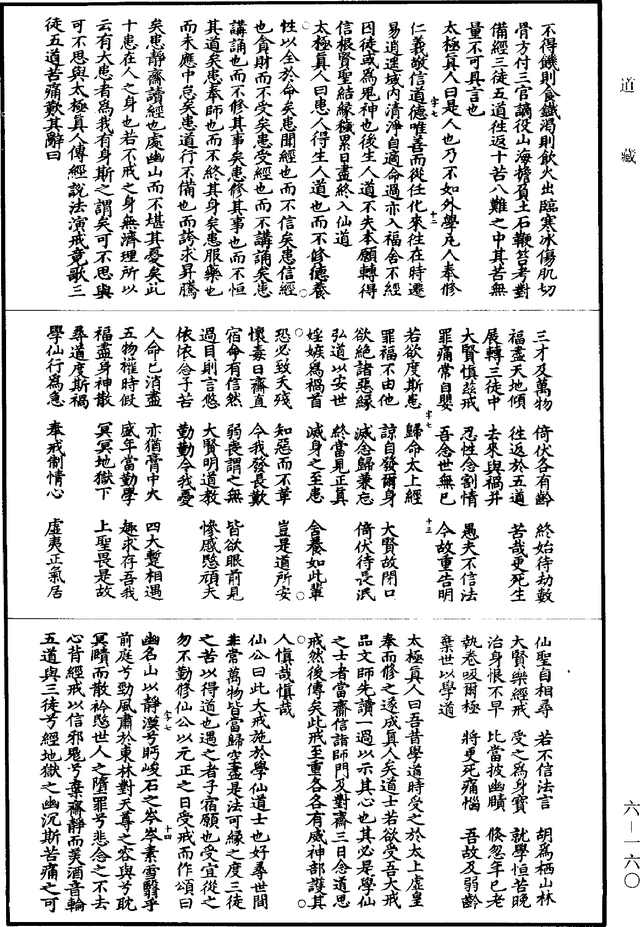 道藏
不得饑則食鐵渴則飲火出臨寒冰傷肌切
骨方付三官謫役山海擔負土石鞭笞考對
備經三徒五道往返十苦八難之中其苦無
量不可具言也
太極真人曰是人也乃不如外學凡人奉修
仁義敬信道德唯善而從任化來往在時遷
易逍遙域內清淨自適命過亦入福舍不經
囚徒或為鬼神也後生人道不失本願轉得
信根賢聖結緣積累日盡終入仙道
太極真人曰患人得生人道也而不修德養
性以全於命矣患聞經也而不信矣患信經
也貪財而不受矣患受經也而不講誦矣患
講誦也而不修其事矣患修其事也而不恒
其道矣患奉師也而不終其身矣患服藥也
而未應中怠矣患道行不備也而誇求昇騰
矣患靜齋讀經也處幽山而不堪其憂矣此
十患在人之身也若不戒之身無濟理所以
云有大患者為我有身斯之謂矣可不思與
可不思與太極真人傳經說法演戒竟歌三
徒五道苦痛歎其辭曰
三才及萬物 倚伏各有齡 終始待劫數
福盡天地傾 往返於五道 苦哉更死生
展轉三徒中 去來與禍并 愚夫不信法
大賢慎茲戒 忍性念割情 今故重告明
罪痛常自嬰 吾念世無已
若欲度斯患 歸命太上經 大賢故閉口
罪福不由他 諒自發爾身 倚伏待長泯
欲絕諸惡緣 滅念歸兼忘
弘道以安世 終當見正真 含養如此輩
婬嫉為禍首 滅身之至患 豈是道所安
恐必致夭殘 知惡而不革
懷毒日齋直 令我發長歎 皆欲眼前見
宿命有信然 弱喪謂之無 慘慼愍頑夫
過目則言悠 大賢明道教
依依念子苦 勤勤令我憂
人命已消盡 亦猶膏中火 四大蹔相遇
五物權時假 盛年當勤學 趣求存吾我
福盡身神散 冥冥地獄下 上聖畏是故
尋道度斯禍
學仙行為急 奉戒制情心 虛夷正氣居
仙聖自相尋 若不信法言 胡為栖山林
大賢樂經戒 受之為身寶 就學恒苦晚
治身恨不早 比當披幽賾 倏忽年已老
執卷吸爾極 將更死痛惱 吾故及弱齡
棄世以學道
太極真人曰吾昔學道時受之於太上虛皇
奉而修之遂成真人矣道士若欲受吾大戒
品文師先讀一過以示其心也其必是學仙
之士者當齋信諸師門及對齋三日念道思
戒然後傳矣此戒至重各各有威神部護其
人慎哉慎哉
仙公曰此大戒施於學仙道士也好尋世間
非常萬物皆當歸空盡是法可緣之度三徒
之苦以得道也遇之者子宿願也受宜從之
勿不勤修仙公以元正之日受戒而作頌曰
幽名山以靜漠兮眄峻石之岑岑素雪翳乎
前庭兮勁風肅於東林對天尊之容與兮耽
冥賾而散衿愍世人之墮罪兮悲念之不去
心背經戒以信邪鬼兮棄齋靜而美酒音輪
五道與三徒兮經地獄之幽沉斯苦痛之可
六—一六〇